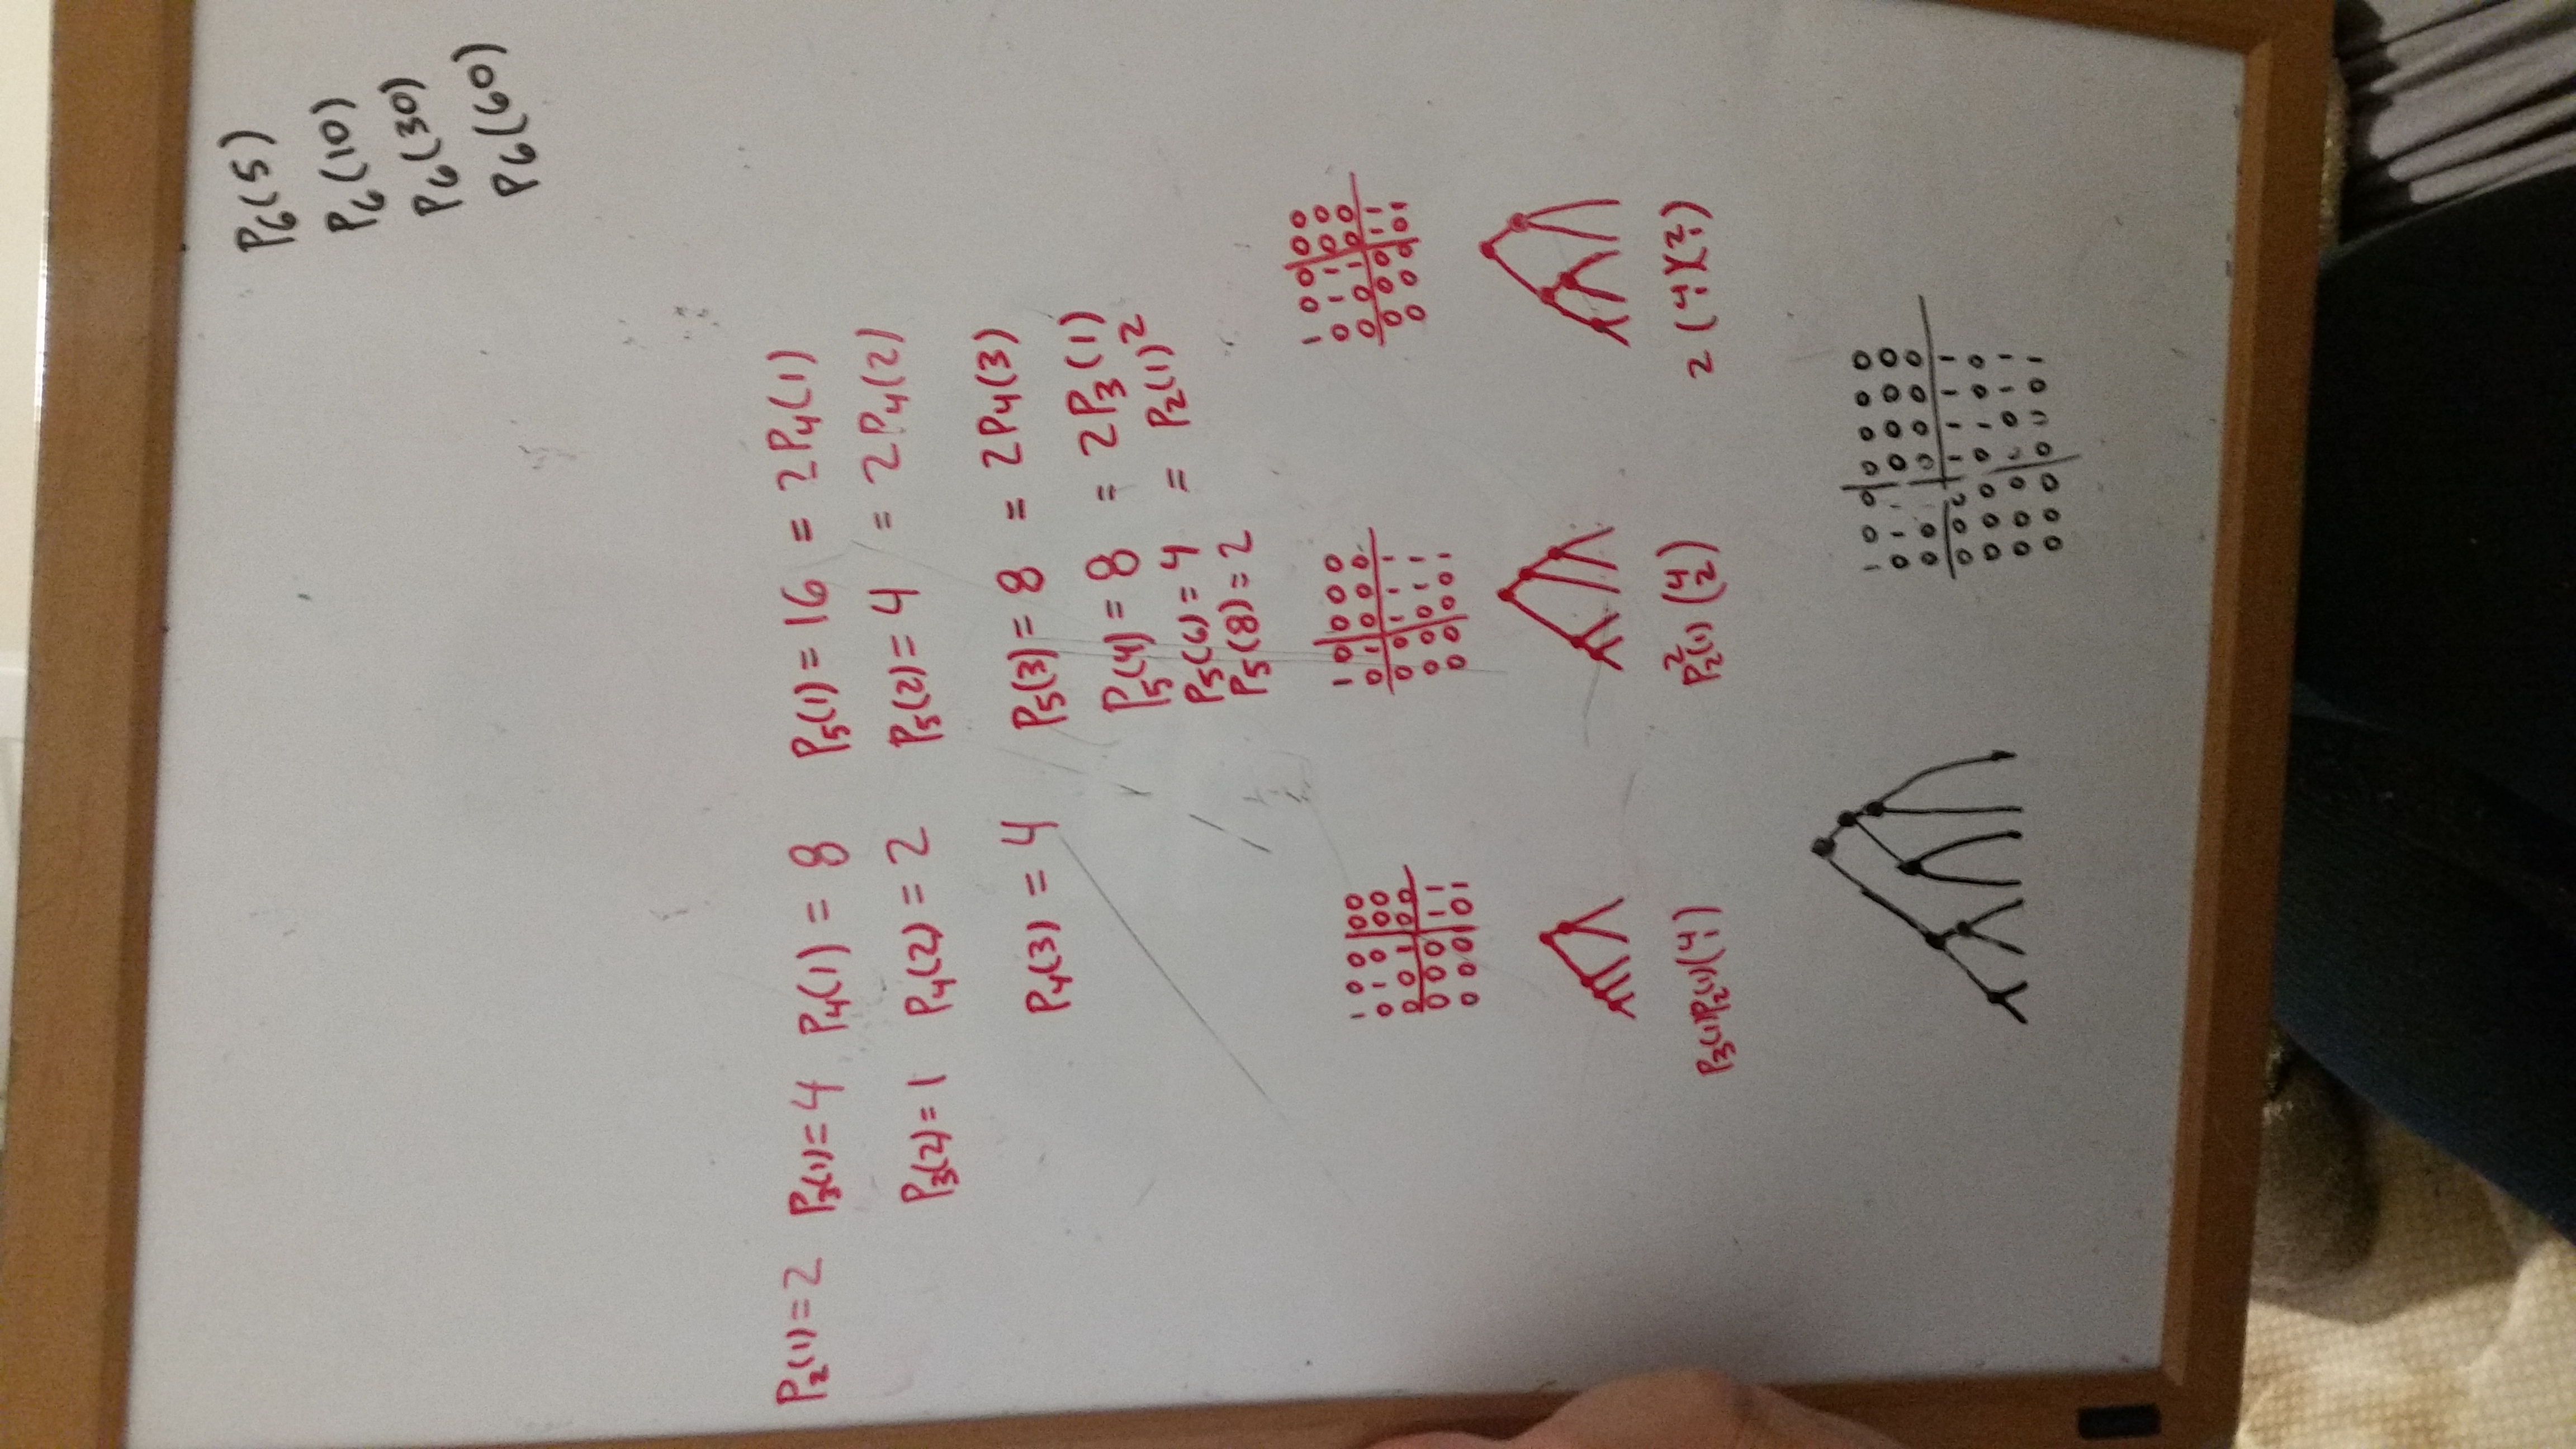 P₆(5)
P₆(10)
P₆(30)
P₆(60)
P₂(1)=2 P₃(1)=4 P₄(1) = 8 P₅(1) = 16 = 2P₄(1)
P₃(2)=1 P₄(2) = 2 P₅(2) = 4 = 2P₄(2)
P₄(3) = 4 P₅(3) = 8 = 2P₄(3)
P₅(4) = 8 = 2P₃(1)
P₅(6) = 4 = P₂(1)²
P₅(8) = 2
1 0 0 | 0 0
0 1 0 | 0 0
0 0 1 | 0 0
0 0 0 | 1 1
0 0 0 | 0 1
1 0 | 0 0 0
0 1 | 0 0 0
0 0 | 1 1 1
0 0 | 0 1 1
0 0 | 0 0 1
1 0 0 | 0 0
0 1 1 | 0 0
0 0 1 | 0 0
0 0 0 | 1 1
0 0 0 | 0 1
P₃(1)P₂(1)(4 1)
P₂²(1) (4 2)
2 (4 1)(2 1)
1 0 0 | 0 0 0 0
0 1 1 | 0 0 0 0
0 0 | 0 0 0 0
0 0 0 | 1 1 1 1
0 0 0 | 0 1 0 0
0 0 0 | 0 0 1 1
0 0 0 | 0 0 0 1